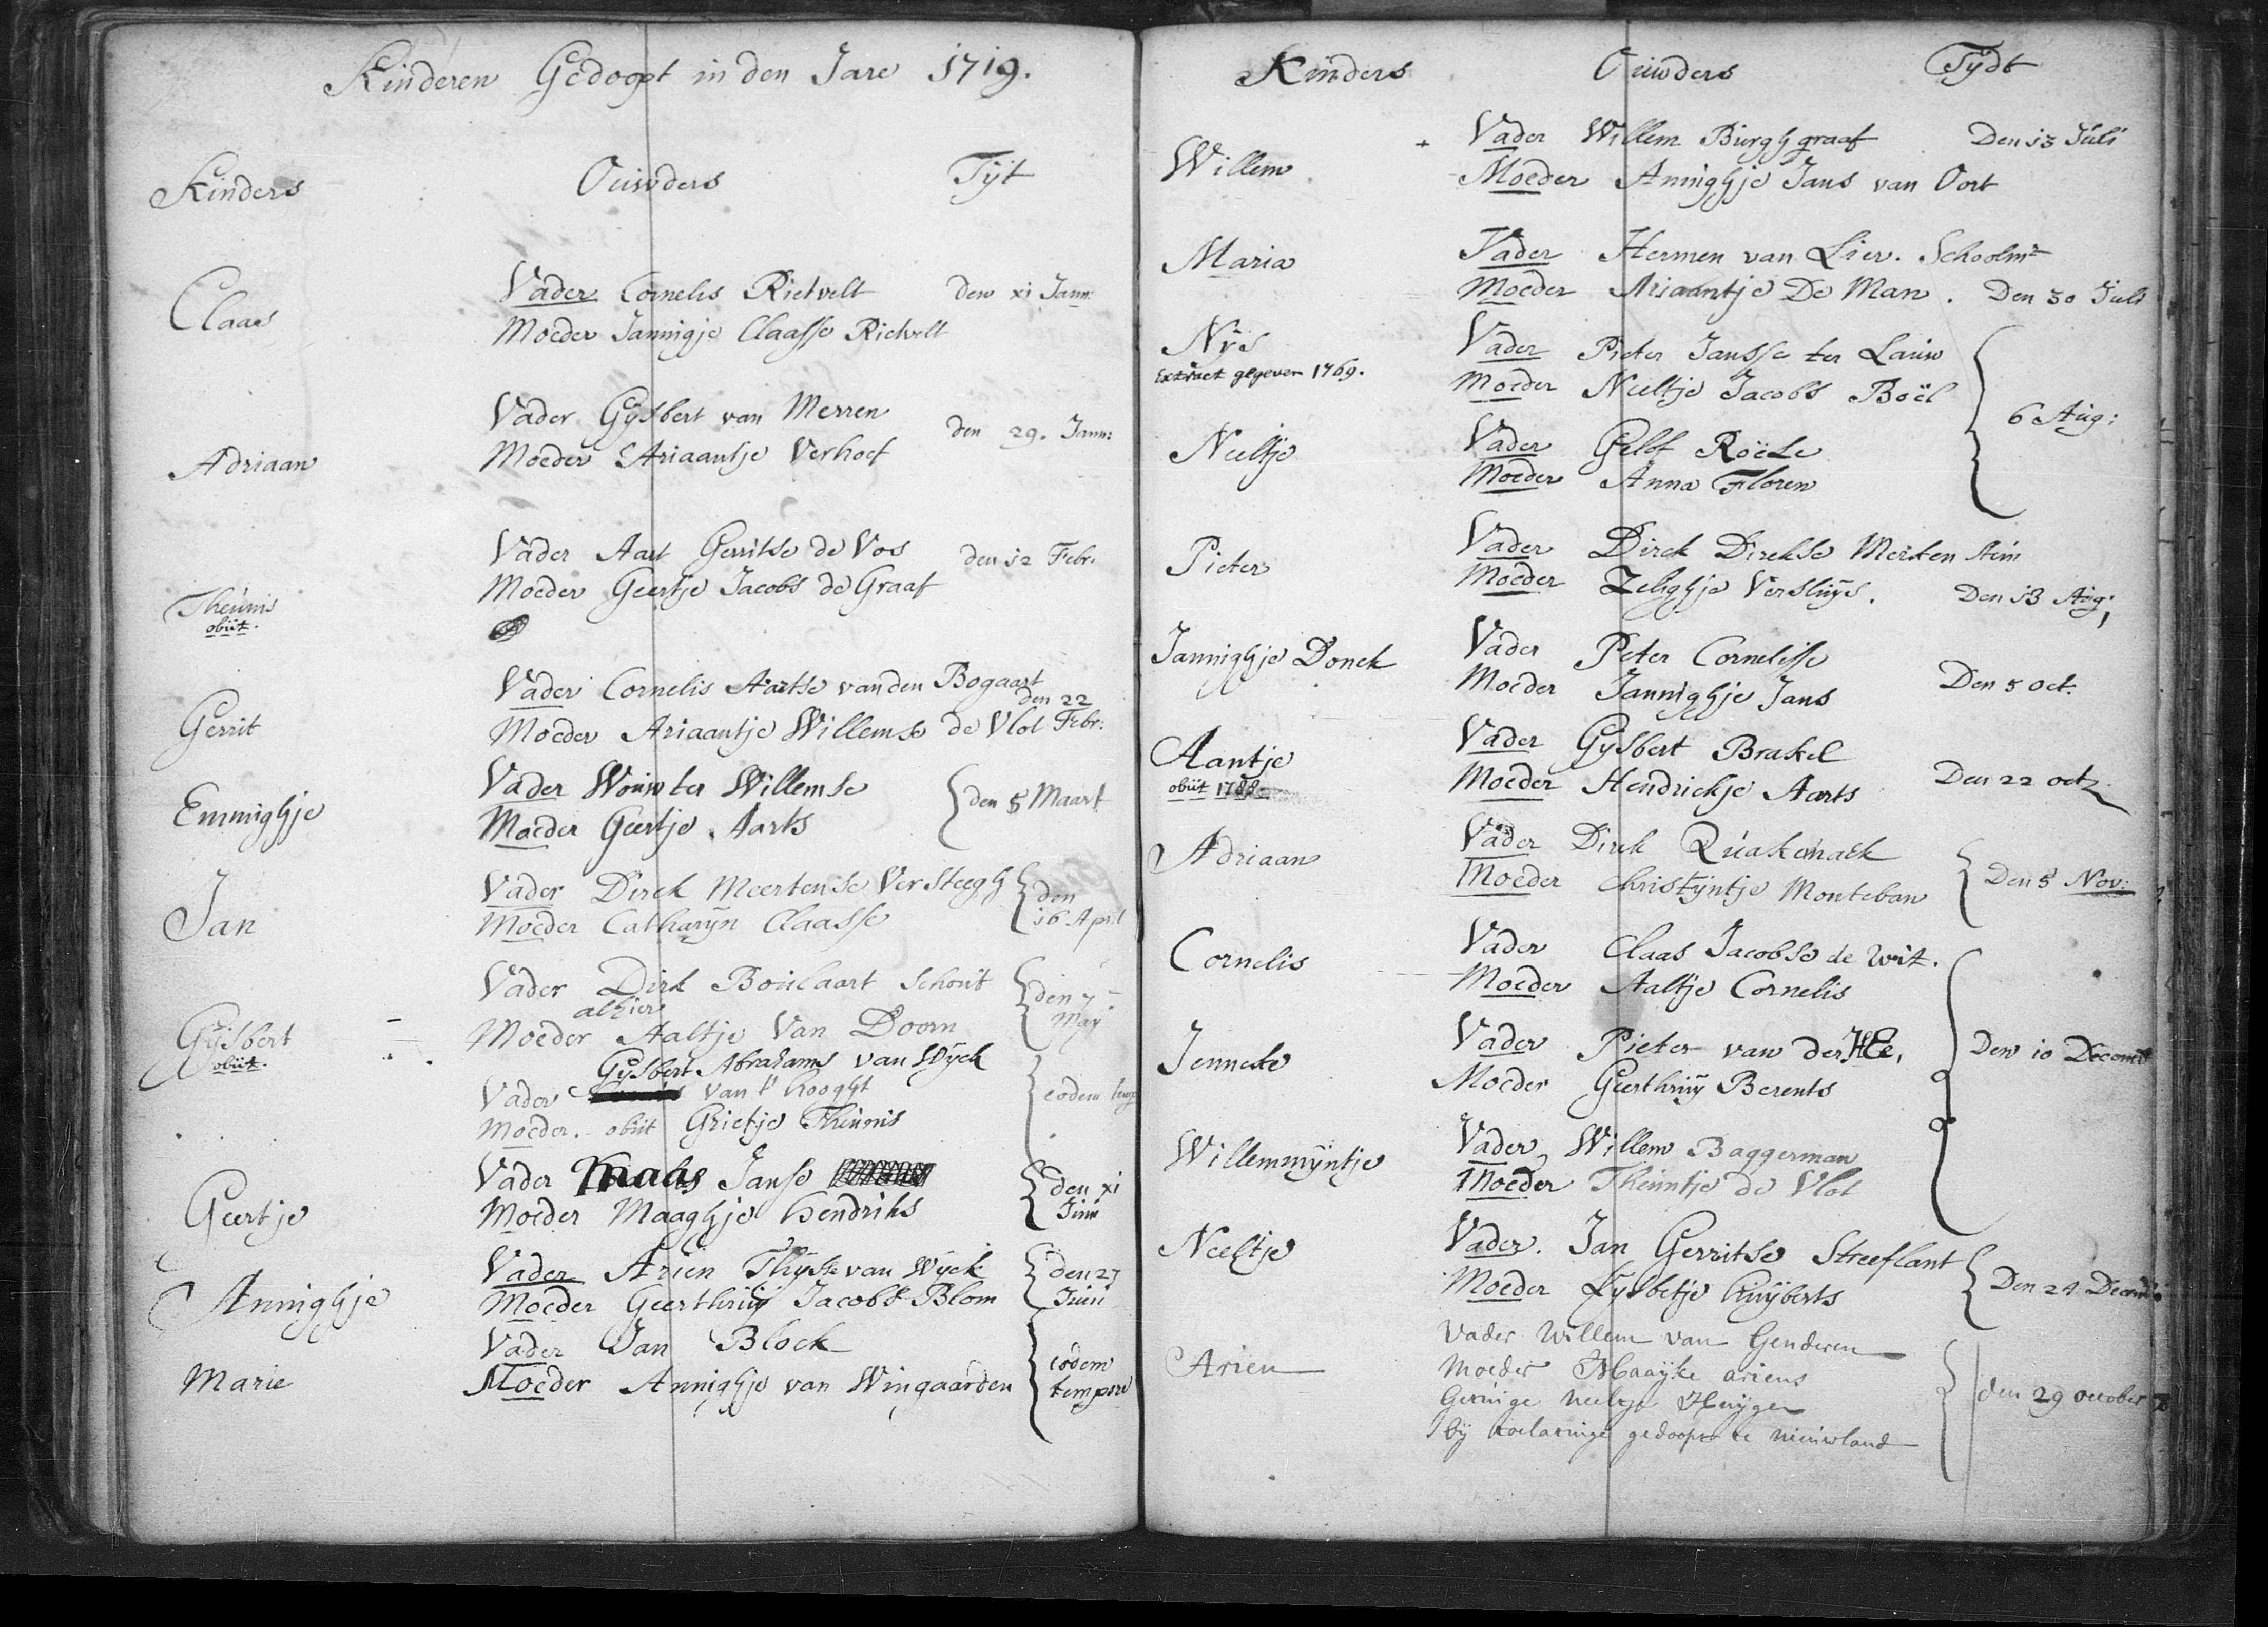 Kinderen Gedoopt in den Jare 1719.
Kinders Ouwders Tijt
Claas
Vader Cornelis Rietvelt den xi Jann:
Moeder Jannigje Claasse Rietvelt
Adriaan
Vader Gijsbert van Merren den 29. Jann:
Moeder Ariaantje Verhoef
Theunis
obiit.
Vader Aart Gerritse de Vos den 12 Febr.
Moeder Geertje Jacobs de Graaf
Gerrit
Vader Cornelis Aartse van den Bogaart
den 22
Moeder Ariaantje Willemse de Vlot Febr:
Emmighje
Vader Wouwter Willemse den 5 Maart
Moeder Geertje Aarts
Jan
Vader Dirck Meertense Versteegh den
Moeder Catharijn Claasse 16 April
Gijsbert
obiit.
Vader Dirk Boulaart Schout den 7
alhier May
Moeder Aaltje Van Doorn
Gijsbert Abrahams van Wijck
Vader van 't hooght eodem temp
Moeder. obiit Grietje Theunis
Geertje
Vader Maas Janse den xi
Moeder Maaghje Hendriks Juni
Annighje
Vader Arien Thijsse van Wijck den 27
Moeder Geerthruij Jacobs Blom Juni
Marie
Vader Jan Block eodem
Moeder Annighje van Wingaarden tempore
Kinders Ouwders Tijdt
Willem
Vader Willem Burghgraaf Den 13 Juli
Moeder Aninghje Jans van Oort
Maria
Vader Hermen van Lier. Schoolmr
Moeder Ariaantje De Man. Den 30 Juli
Nijs
Extract gegeven 1769.
Vader Pieter Jansse ter Lauw
Moeder Neeltje Jacobs Boël
6 Aug:
Neeltje
Vader Gelof Roële
Moeder Anna Floren
Pieter
Vader Dirck Dirckse Merken
Moeder Zelighje Versluijs. Den 13 Aug:
Jannighje Donck
Vader Peter Cornelisse
Moeder Jannighje Jans Den 5 oct.
Aantje
obiit 1788
Vader Gijsbert Brakel
Moeder Hendrickje Aarts Den 22 oct
Adriaan
Vader Dirck Quakernack
Moeder Christijntje Monteban Den 5 Nov:
Cornelis
Vader Claas Jacobse de Wit.
Moeder Aaltje Cornelis
Jenneke
Vader Pieter van der Hee, Den 10 Decemb
Moeder Geerthruij Berents
Willemmijntje
Vader, Willem Baggerman
Moeder Theuntje de Vlot
Neeltje
Vader. Jan Gerritse Streeflant
Moeder Lijsbetje Huijberts Den 24 Decemb:
Arien
Vader Willem van Genderen
Moeder Maayke ariens
Getuige Neeltje Huijgen den 29 october
bij gedoopt te Nieuwland